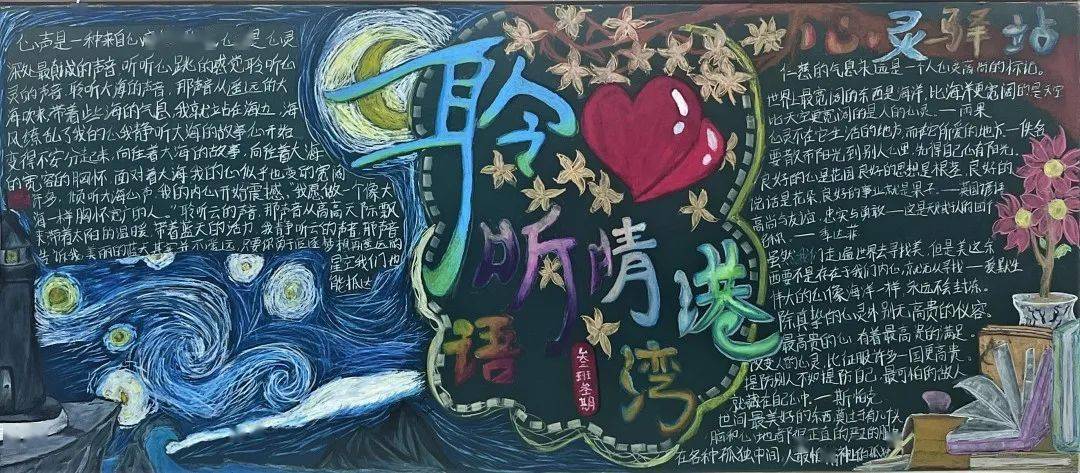 心声是一种来自心 心灵
深处最真诚的声音 听听心跳的感觉 聆听心
灵的声音 聆听大海的声音 那声音从遥远的大
海吹来 带着些许海的气息 我就站在海边 海
风 了我的心 我静听大海的故事 心开始
变得不安分起来 向往着大海的故事 向往着大海
的宽容的胸怀 面对着大海 我的心似乎也变的宽阔
许多 倾听大海心声 我的内心开始震撼 "我愿做一个像大
海一样胸怀宽广的人。" 聆听云的声音 那声音从高高天际飘
来 带着太阳的温暖 带着蓝天的活力 我静听云的声音 那声音
告诉我 美丽的蓝天其实并不遥远
星空 我们也
能抵达
聆
听晴港
语
湾
叁班冬期
心灵驿站
仁慈的气息永远是一个人心灵高尚的标记。
世界上最宽阔的东西是海洋,比海洋更宽阔的是天空
比天空更宽阔的是人的心灵——雨果
心灵不在它生活的地方,而在它所爱的地方——佚名
要散布阳光到别人心里,先得自己心里有阳光。
良好的心是花园 良好的思想是根茎 良好的
说话是花朵 良好的事业就是果子——英国谚语
高尚 友谊 忠实与勇敢——这是 的四个
——车达菲
虽然我们走遍世界去寻找美 但是美这东
西要不是存在于我们内心 就无从寻找——爱默生
伟大的心像海洋一样 永远不会封冻。
除真挚的心灵外别无高贵的仪容。
最高贵的心 有着最高贵的满足
改变人的心灵 比征服许多国更高贵
提防别人不如提防自己,最可怕的敌人
就藏在自己心中——斯
世间最美好的东西莫过于有个
脑和心地都 正直的严正的朋
在各种孤独中间,人最怕 神上的孤独